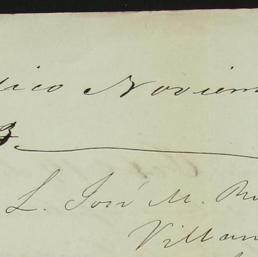 ico Noviem
3.
L. José M. Ru
Villam